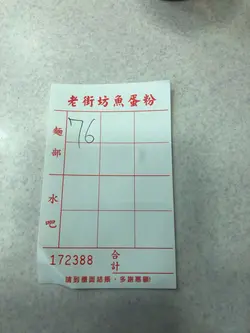 老街坊魚蛋粉
76
麵部
水吧
172388 合計
請到櫃面結賬，多謝惠顧!